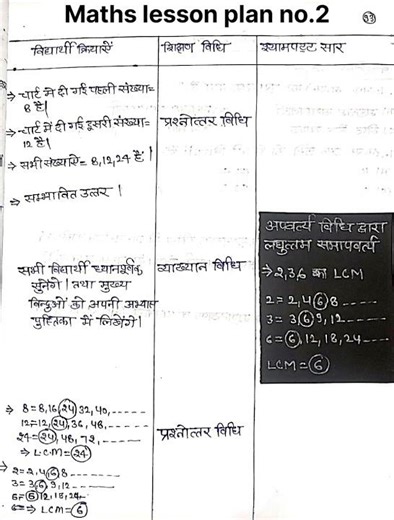 Maths lesson plan no.2
विद्यार्थी क्रियाऐं
शिक्षण विधि
श्यामपट्ट सार
→ चार्ट में दी गई पहली संख्या=
8 है।
→ चार्ट में दी गई दूसरी संख्या=
12 है।
प्रश्नोत्तर विधि
→ सभी संख्याऐं = 8,12,24 हैं।
→ सम्भावित उत्तर।
अपवर्त्य विधि द्वारा
लघुत्तम समापवर्त्य
→ 2,3,6 का LCM
2 = 2,4,6,8 ----
3 = 3,6,9,12 ----
6 = 6,12,18,24 ----
LCM = 6
सभी विद्यार्थी ध्यानपूर्वक
सुनेंगे। तथा मुख्य
बिन्दुओं को अपनी अभ्यास
पुस्तिका में लिखेंगे।
व्याख्यान विधि
→ 8 = 8,16,24,32,40,-----
12 = 12,24,36,48,-----
24 = 24,48,72,-----
⇒ L.C.M = 24
प्रश्नोत्तर विधि
→ 2 = 2,4,6,8 -----
3 = 3,6,9,12 ----
6 = 6,12,18,24--
6 = ⇒ LCM = 6